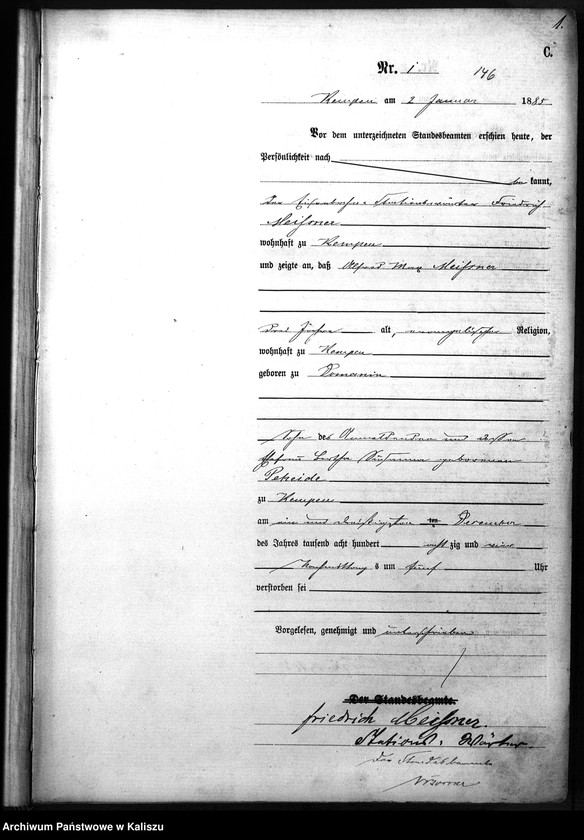 1.
C.
Nr. 1 146
Kempen am 2 Januar 1885
Vor dem unterzeichneten Standesbeamten erschien heute, der
Persönlichkeit nach
be kannt,
der Eisenbahn-Stationswärter Friedrich
Meißner
wohnhaft zu Kempen
und zeigte an, daß Alfred Max Meißner
drei Jahre alt, evangelischer Religion,
wohnhaft zu Kempen
geboren zu Domanin
Sohn des Anmeldenden und dessen
Ehefrau Bertha Susanna geborenen
zu Kempen
am ein und dreißigsten ten December
des Jahres tausend acht hundert acht zig und vier
Nachmittags um fünf Uhr
verstorben sei
Vorgelesen, genehmigt und unterschrieben
Der Standesbeamte.
friedrich Meißner.
Stations-Wärter.
Der Standesbeamte
Archiwum Państwowe w Kaliszu